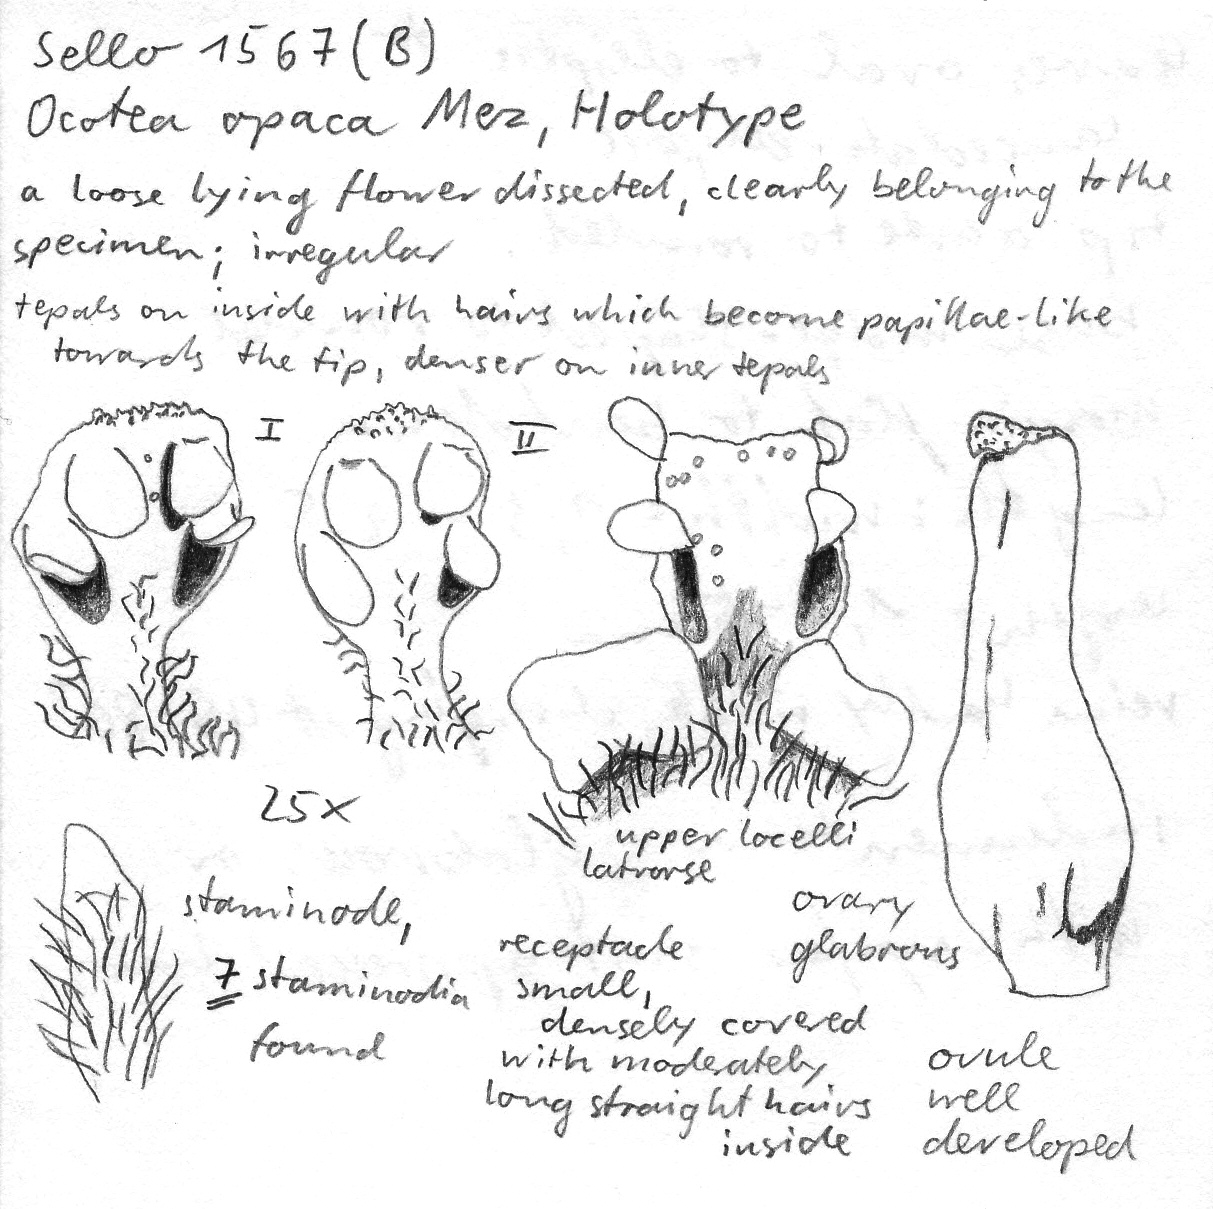 Sello 1567 (B)
Ocotea opaca Mez, Holotype
a loose lying flower dissected, clearly belonging to the
specimen; irregular
tepals on inside with hairs which become papillae-like
towards the tip, denser on inner tepals
I
II
25x
upper locelli
latrorse
staminode,
7 staminodia
found
receptacle
small,
densely covered
with moderately
long straight hairs
inside
ovary
glabrous
ovule
well
developed